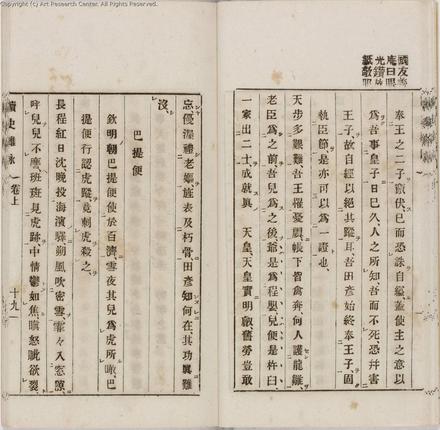 (c) Art Research Center. All Rights Reserved.
國友善
庵曰眼
光鑽
紙
奉王之二子竄伏已而恐誅自縊蓋使主之意以
爲吾事皇子日已久人之所知吾而不死恐幷害
王子故自經以絕其蹤耳吾田彥始終奉王子固
執臣節是亦可以爲一證也
天步多艱難吾王罹憂虞帳下皆禽奔何人護龍雛
老臣爲之前吾兒爲之後爺是爲程嬰兒便是杵臼
一家出二士成就眞天皇天皇實明叡舊勞豈敢
忘優渥禮老嫗旌表及朽骨田彥知何在其功異難
沒
巴提便
欽明朝巴提便使於百濟雪夜其兒爲虎所噉巴
提便行認虎蹤竟刺虎殺之
長程紅日沈晚投海濱驛朔風吹密雪霏々入窓隙
呼兒兒不應班班見虎跡中情鬱如焦瞋怒眦欲裂
讀史雜詠 卷上 十九